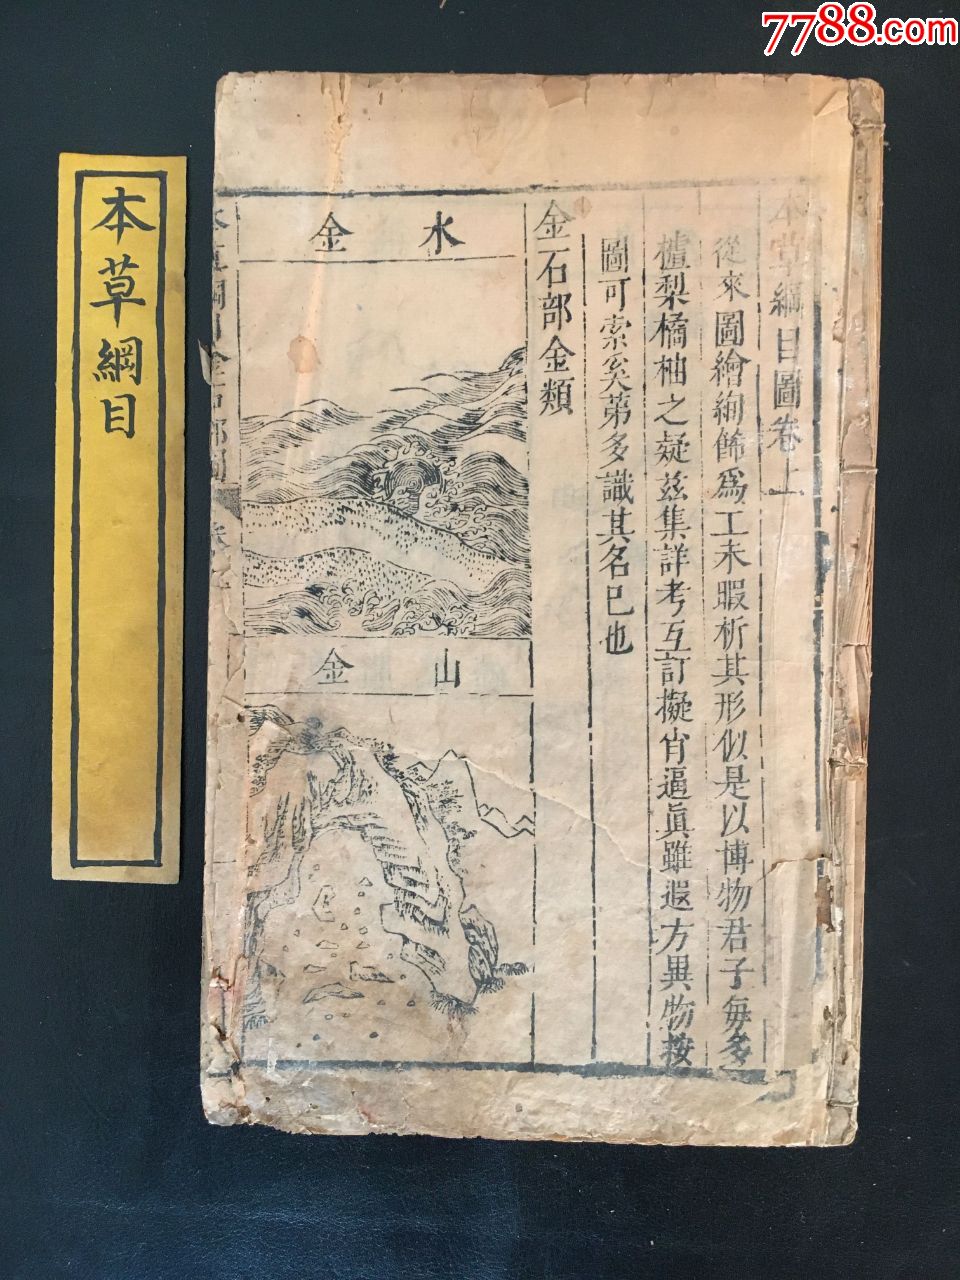 7788.com
本草綱目
本草綱目圖卷上
從來圖繪絢餙爲工未暇析其形似是以博物君子每多
楂梨橘柚之疑兹集詳考互訂擬肖逼眞雖遐方異物按
圖可索奚苐多識其名已也
金石部金類
水金
山金